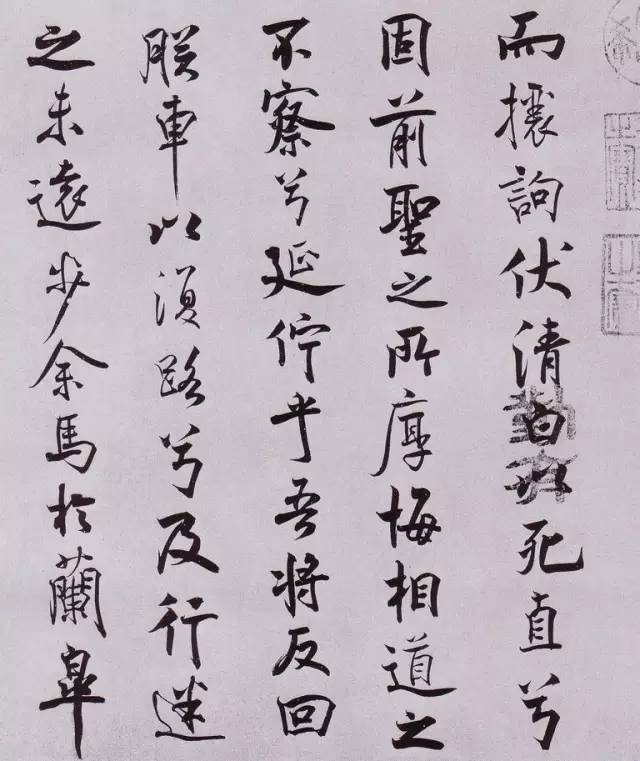 而攘詢伏清白以死直兮
固前聖之所厚悔相道之
不察兮延佇乎吾將反回
朕車以須路兮及行迷
之未遠步余馬於蘭皋